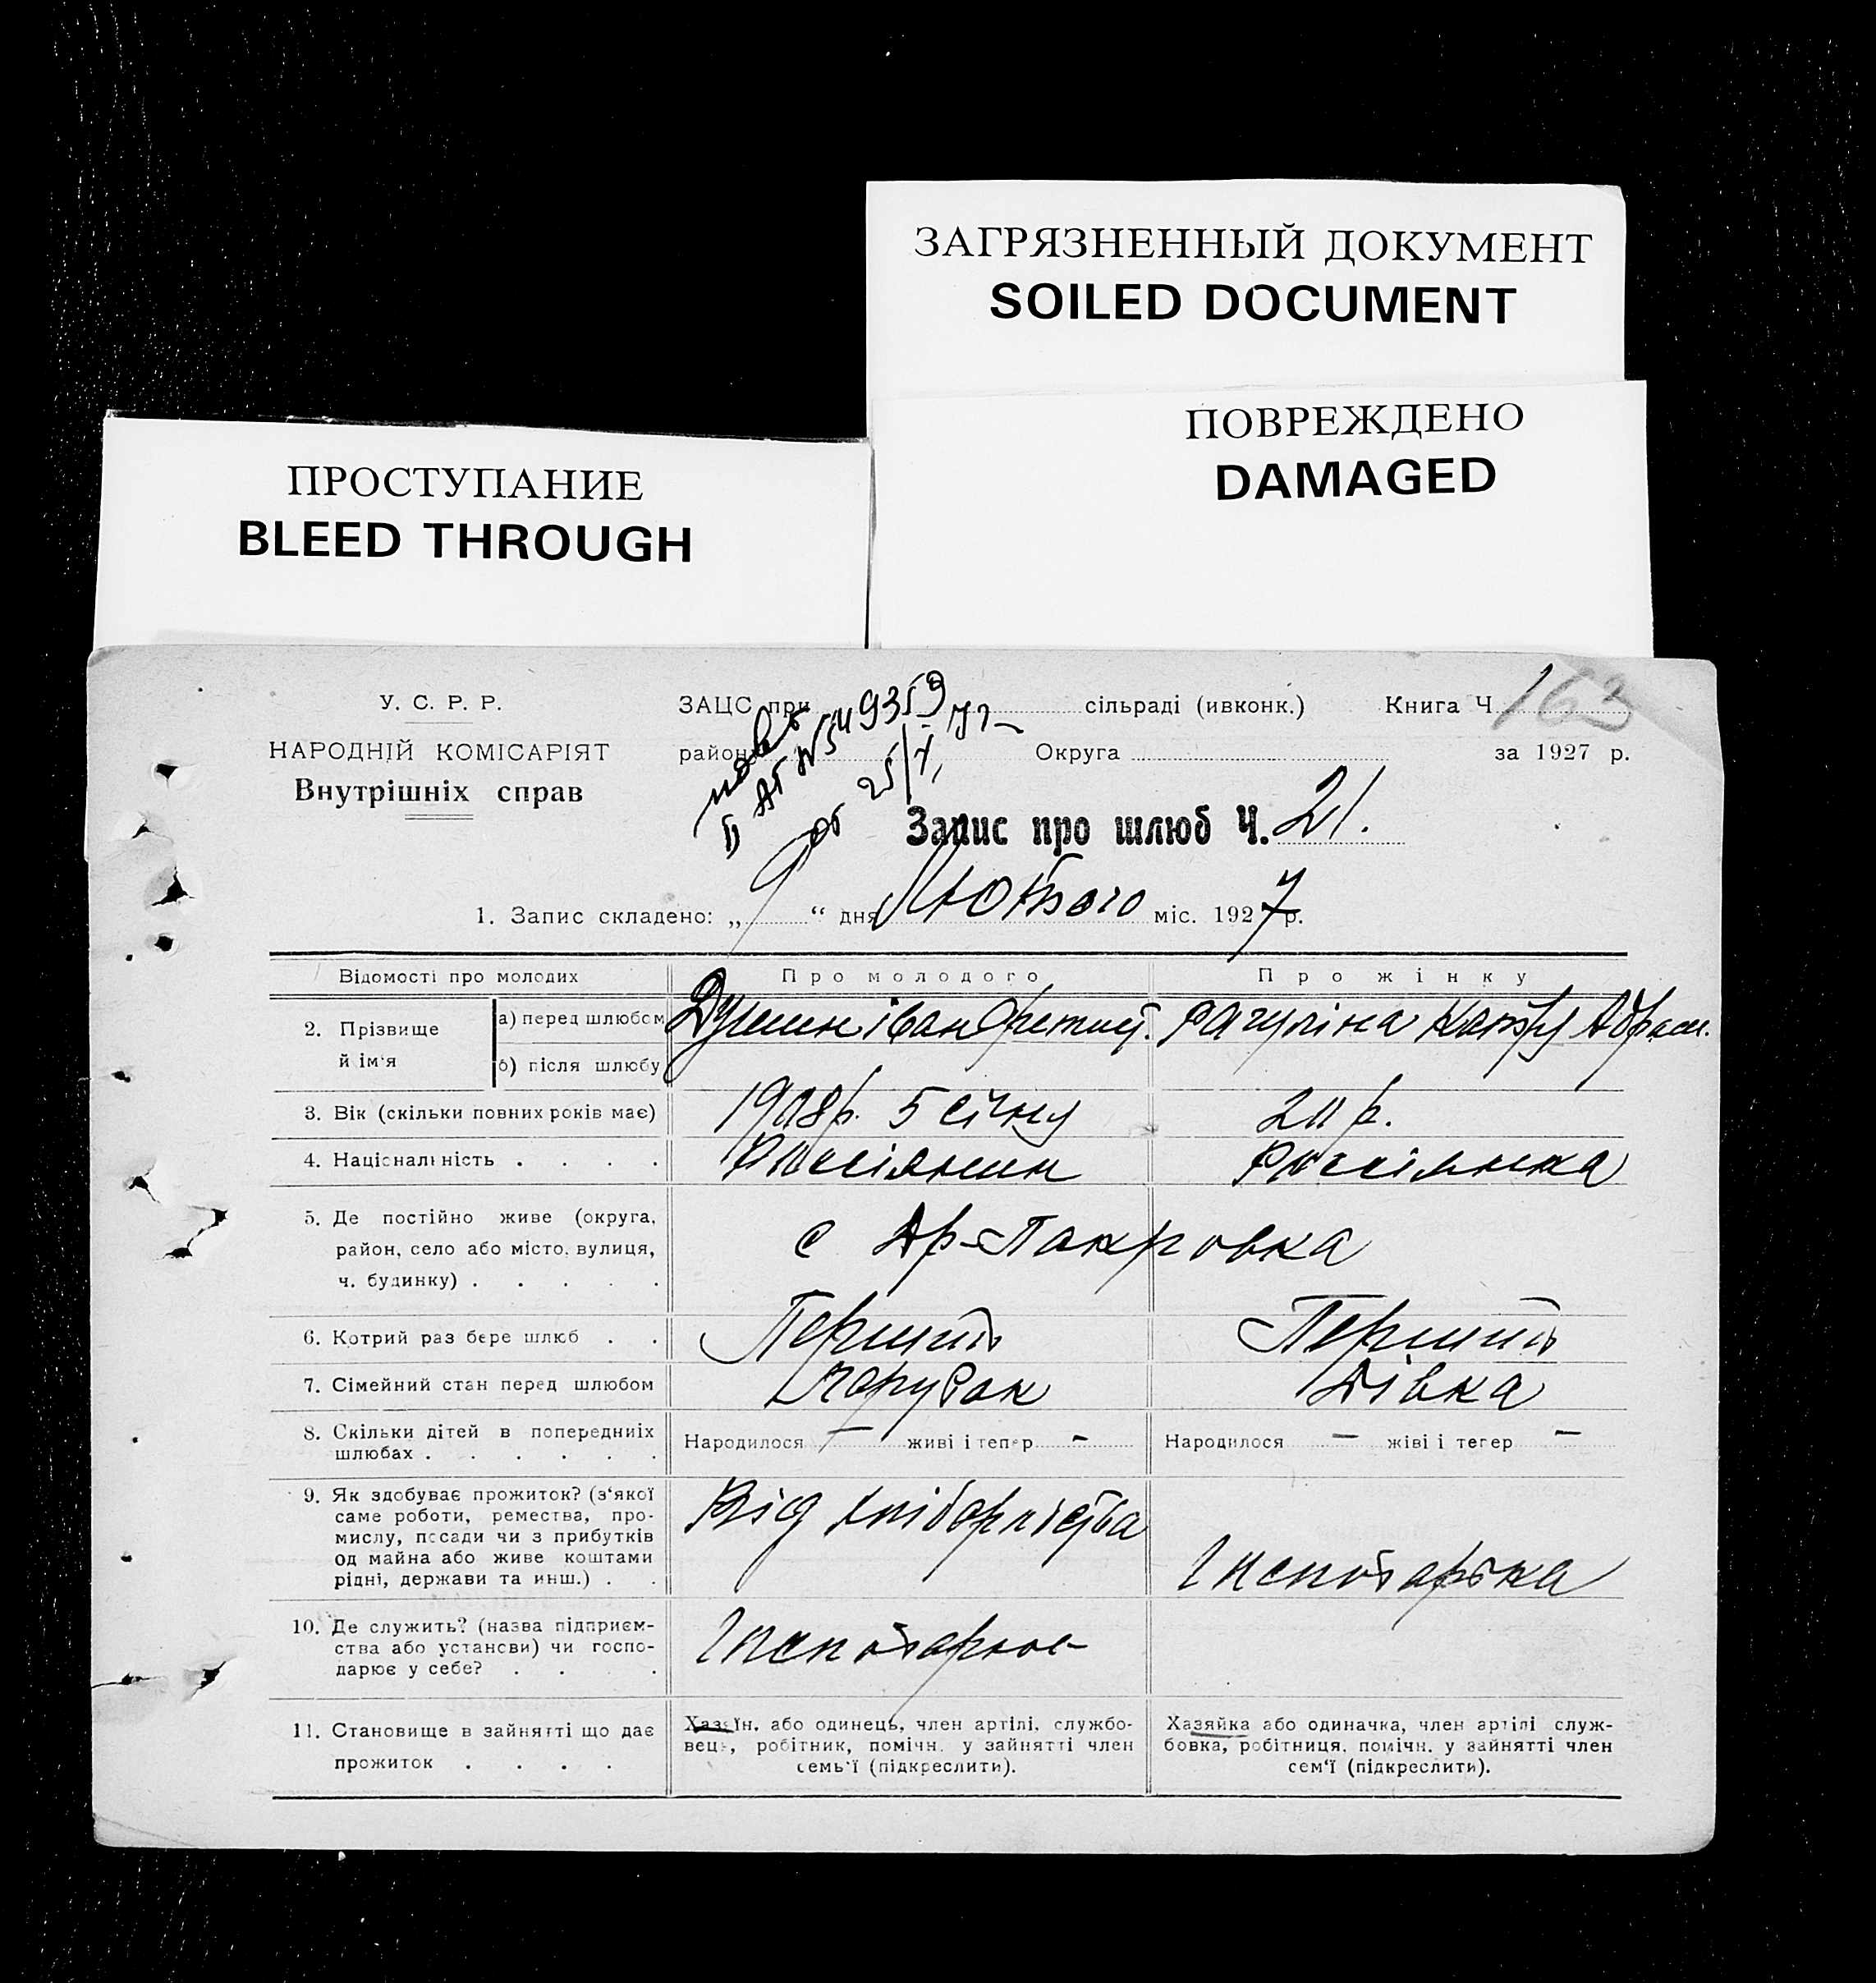 ЗАГРЯЗНЕННЫЙ ДОКУМЕНТ
SOILED DOCUMENT
ПОВРЕЖДЕНО
DAMAGED
ПРОСТУПАНИЕ
BLEED THROUGH
У. С. Р. Р.
НАРОДНІЙ КОМІСАРІЯТ
Внутрішніх справ
ЗАЦС при сільраді (ивконк.) Книга Ч. 163
район Округа за 1927 р.
II АБ № 549359
от 25/X
Запис про шлюб Ч. 21.
1. Запис складено: „ 9 “ дня Лютого міс. 1927 р.
Відомості про молодих Про молодого Про жінку
2. Прізвище й ім'я
а) перед шлюбом іван Абрам.
б) після шлюбу
3. Вік (скільки повних років має) 1908р. 5 січня 20 р.
4. Національність . . . . Россіянин Россіянка
5. Де постійно живе (округа,
район, село або місто, вулиця,
ч. будинку) . . . . .
с Ар-Пакровка
6. Котрий раз бере шлюб . . Перший Перший
7. Сімейний стан перед шлюбом Парубок Дівка
8. Скільки дітей в попередніх
шлюбах . . . . . .
Народилося — живі і тепер — Народилося — жіві і тепер —
9. Як здобуває прожиток? (з'якої
саме роботи, ремества, про-
мислу, посади чи з прибутків
од майна або живе коштами
рідні, держави та инш.) . .
Від хліборобства
10. Де служить? (назва підприєм-
ства або установи) чи госпо-
дарює у себе? . . . .
11. Становище в зайнятті що дає
прожиток . . . .
Хазяїн, або одинець, член артілі, службо-
вець, робітник, помічн. у зайнятті член
семь'ї (підкреслити).
Хазяйка або одиначка, член артілі служ-
бовка, робітниця, помічн. у зайнятті член
сем'ї (підкреслити).